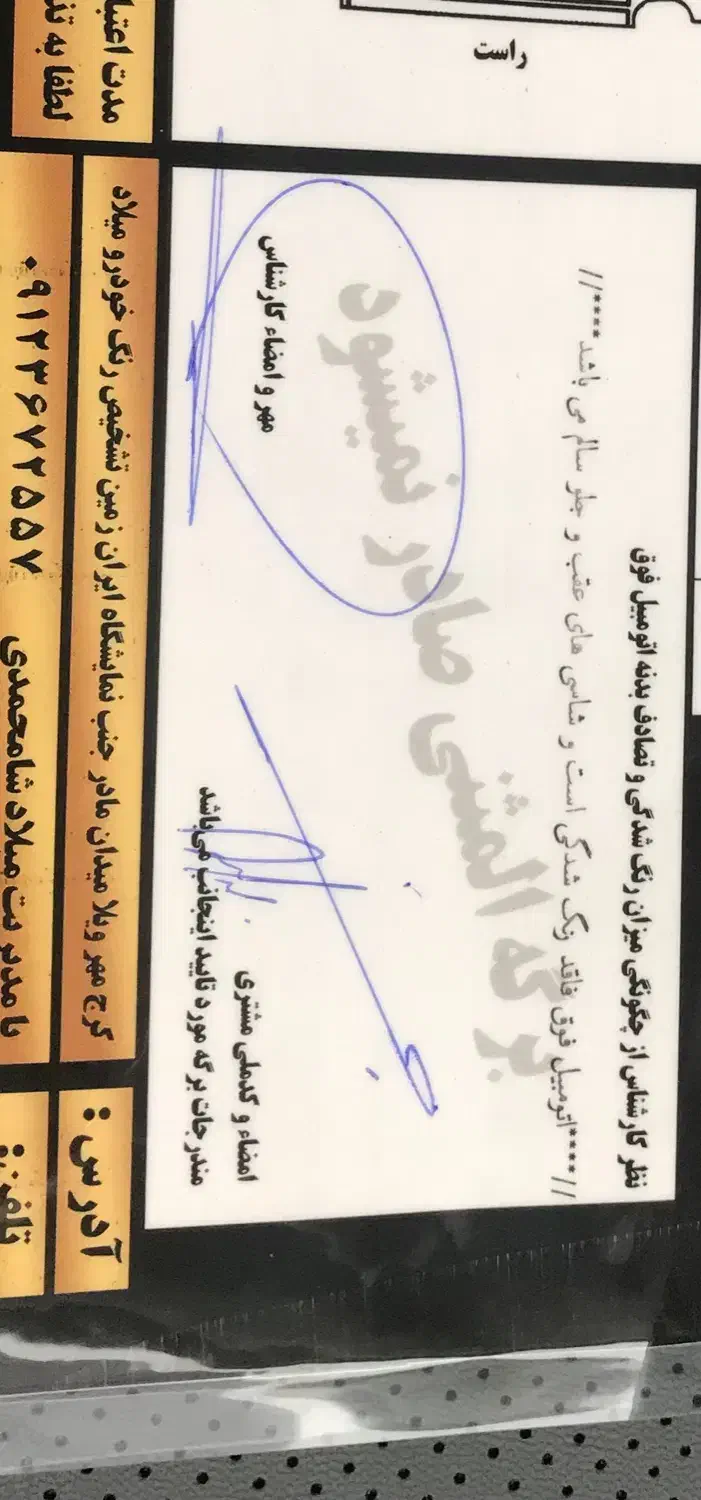 راست
نظر کارشناس از چگونگی میزان رنگ شدگی و تصادف بدنه اتومبیل فوق
//****اتومبیل فوق فاقد رنگ شدگی است و شاسی های عقب و جلو سالم می باشد****//
برگه المثنی صادر نمیشود
مهر و امضاء کارشناس
امضاء و کدملی مشتری
مندرجات برگه مورد تایید اینجانب می‌باشد
مدت اعتبا
لطفا به تذ
آدرس :
کرج مهر ویلا میدان مادر جنب نمایشگاه ایران زمین تشخیص رنگ خودرو میلاد
تلفن:
با مدیریت میلاد شامحمدی ۰۹۱۲۳۶۷۲۵۵۷